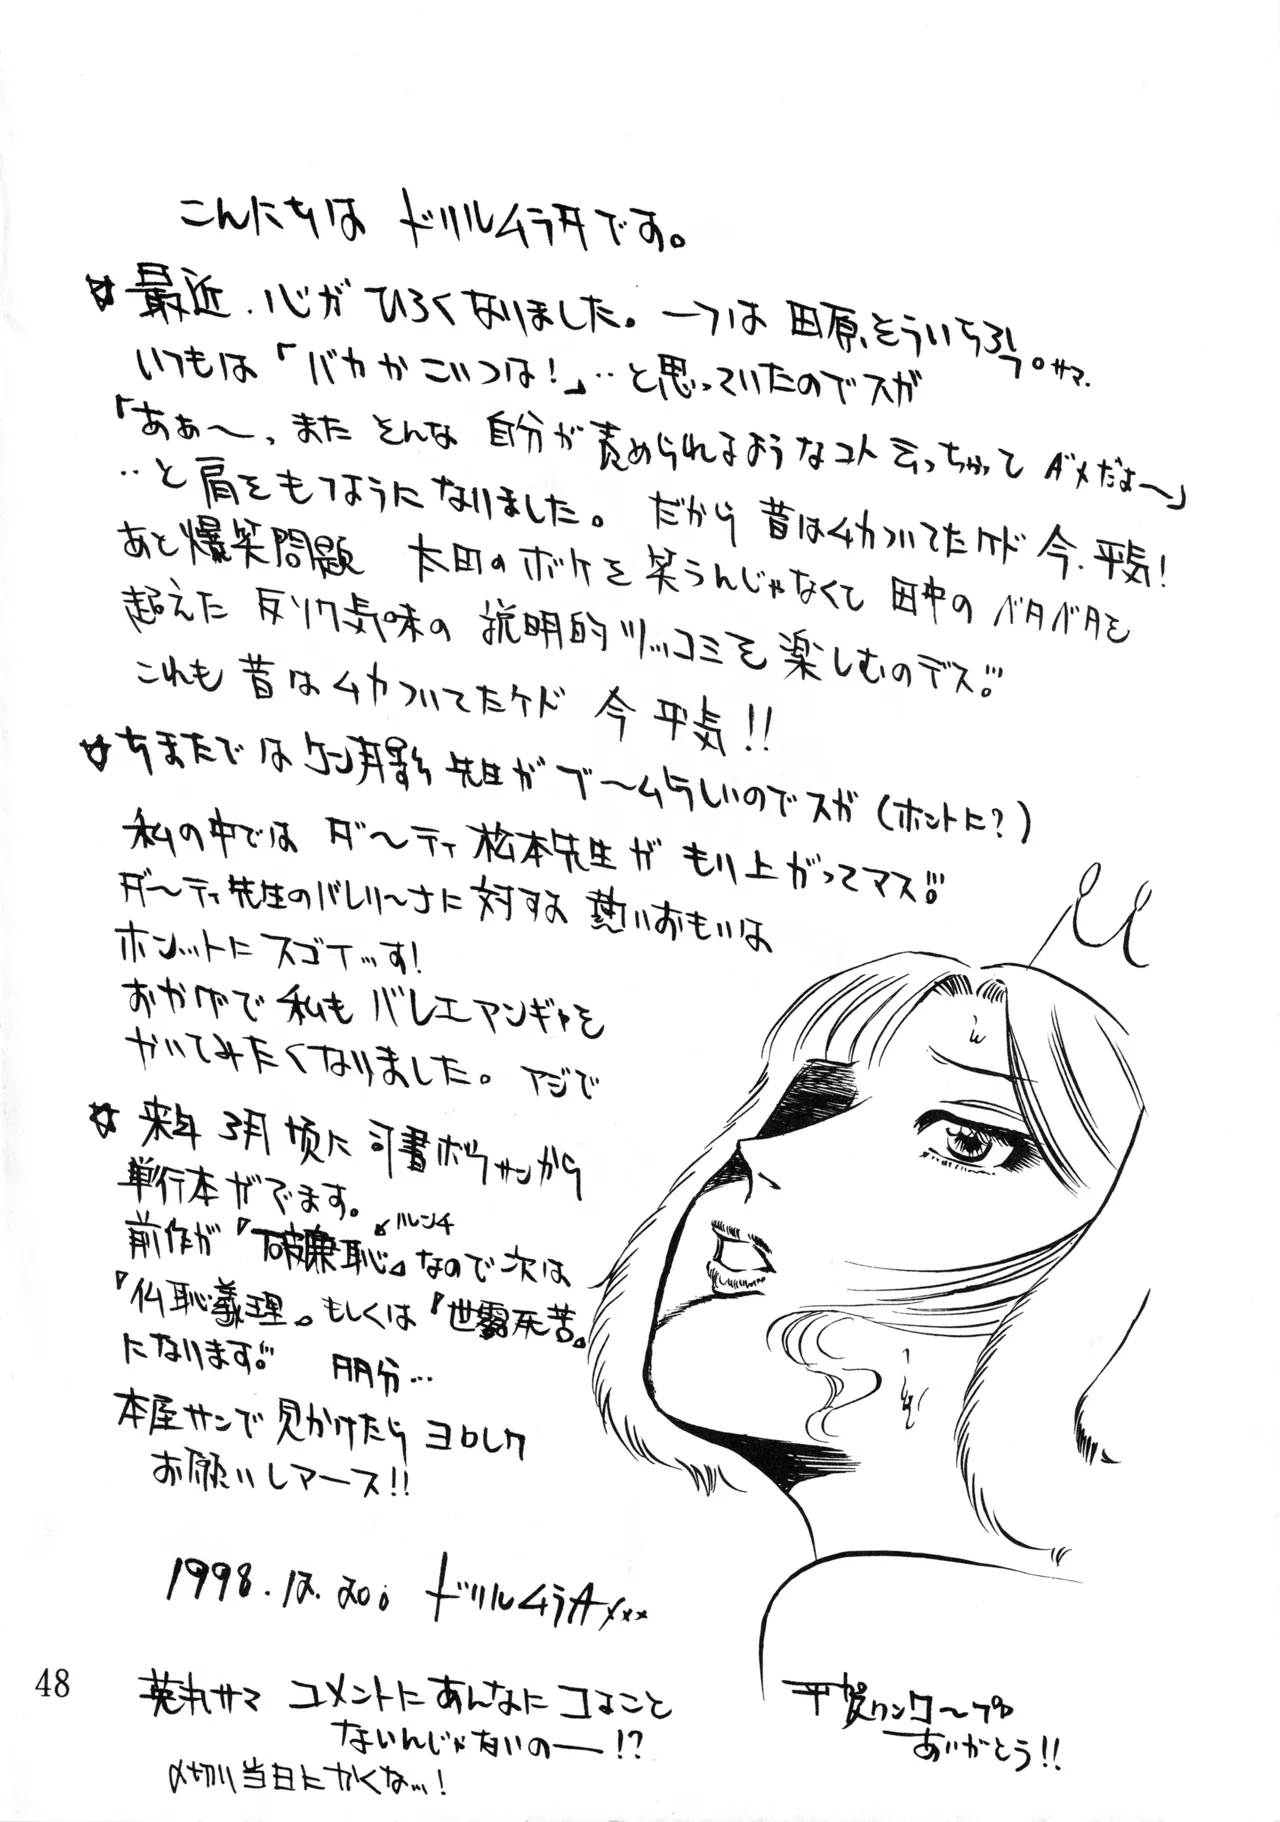 こんにちは ドリルムラタです。
☆最近、心がひろくなりました。一つは 田原そういちろうサマ。
いつもは「バカかこいつは!」‥と思っていたのでスガ
「あぁ〜、また そんな 自分が責められるようなコト云っちゃって ダメだよ〜」
‥と肩をもつようになりました。だから 昔はムカついてたケド 今、平気!
あと 爆笑問題 太田のボケを笑うんじゃなくて 田中の ベタベタを
超えた 反ソク気味の 説明的ツッコミを 楽しむのデス!!
これも 昔はムカついてたケド 今 平気!!
☆ちまたでは ケン月影先生が ブームらしいのでスガ(ホントに?)
私の中では ダ〜ティ松本先生が もり上がってマス!!
ダ〜ティ先生のバレリ〜ナに対する 熱いおもいは
ホンットに スゴイッす!
おかげで 私も バレエマンガを
かいてみたくなりました。マジで
☆来年 3月 頃に 司書ボウサンから
単行本がでます。
ハレンチ
前作が『破廉恥』なので 次は
『仏恥義理』もしくは『世露死苦』
になります!! 多分…
本屋サンで 見かけたら ヨロシク
お願いしマース!!
1998.12.20. ドリルムラタ×××
48
コメントに あんなに コること
ないんじゃないのー!?
〆切り当日にかくな…!
平賀ワンワ〜プ
ありがとう!!